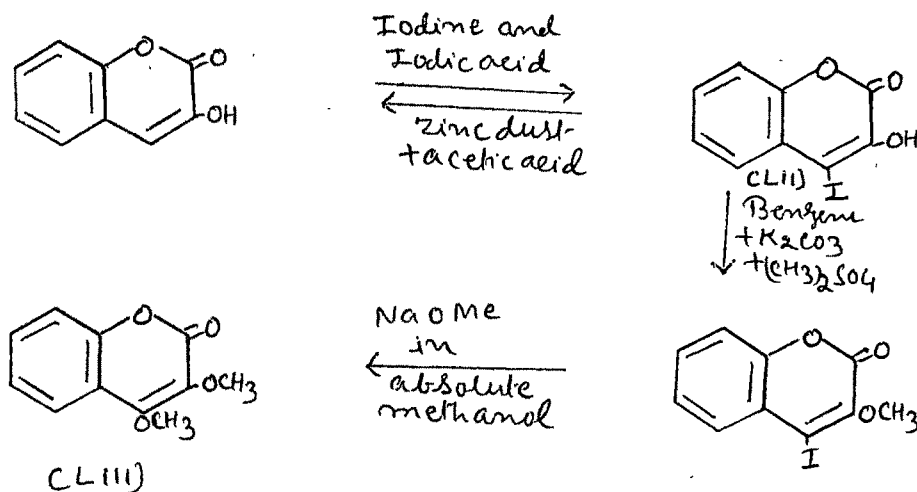 Iodine and
Iodic acid
Zinc dust
+ acetic acid
O
O
OH
O
O
OH
I
(LII)
Benzene
+K2CO3
+(CH3)2SO4
O
O
OCH3
I
NaOMe
in
absolute
methanol
O
O
OCH3
OCH3
(LIII)